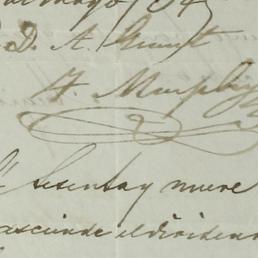 D. A. Grant
F. Murphy
Sesenta y nueve
asciende el dividend